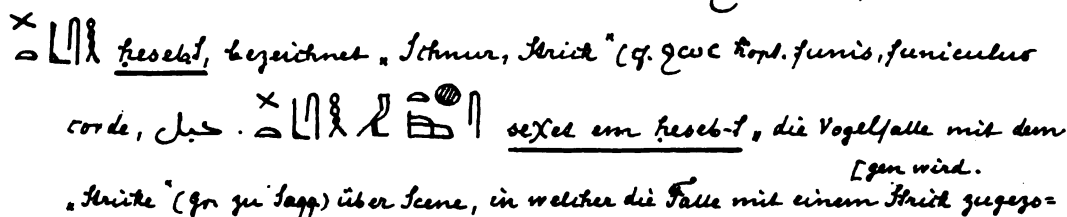 ḥeseb-t, bezeichnet „Schnur, Strick“ (cf. ϩωc kopt. funis, funiculus
corde, حبل. seχet em ḥeseb-t „die Vogelfalle mit dem
[gen wird.
„Stricke“ (Gr. zu Saqq) über Scene, in welcher die Falle mit einem Strick zugezo=